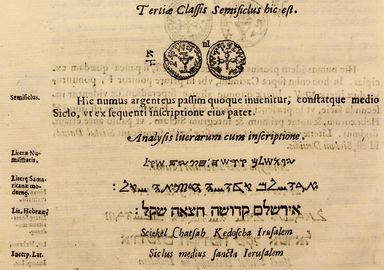 Tertiæ Classis Semisiclus hic est.
Semisiclus.
Hic numus argenteus passim quoque inuenitur; constatque medio
Siclo, vt ex sequenti inscriptione eius patet.
Analysis literarum cum inscriptione.
Literæ Nu-
mismatis.
Literæ Sama-
ritanæ mo-
dernæ.
Lit. Hebraic.
אירשלם קדושה חצאה שקל:
Sciekel Chatsah Kedoscha Irusalem
Interp. Lat.
Siclus medius sancta Ierusalem